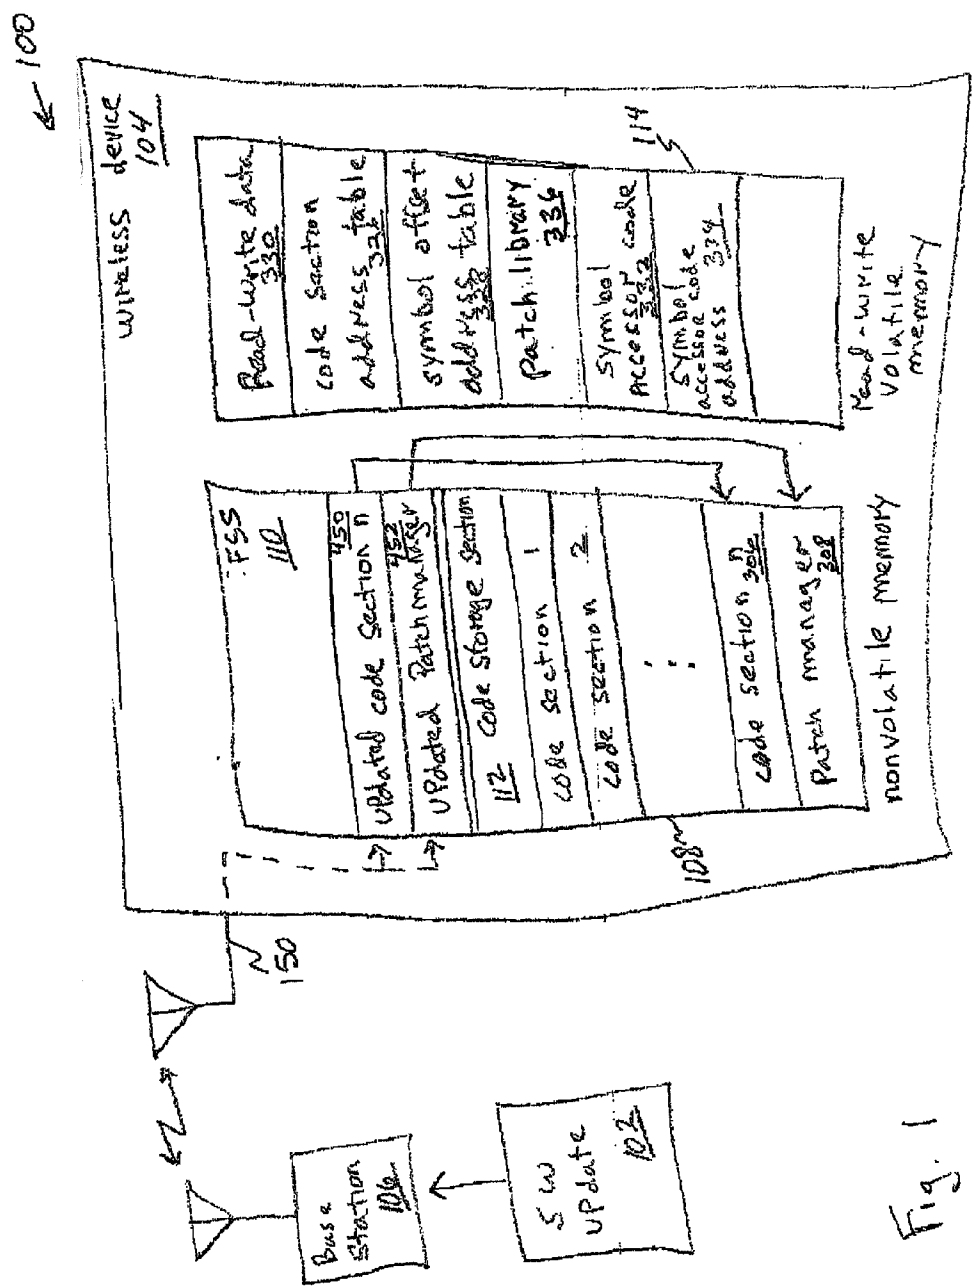 100
wireless device
104
Read-write data
330
code section
address table
326
symbol offset
address table
328
Patch library
336
symbol
Accessor code
332
symbol
accessor code
address 334
114
Read-write
volatile
memory
FSS
110
updated code section n
450
updated Patch manager
452
112 code storage section
code section 1
code section 2
code section n
306
Patch manager
308
108
nonvolatile memory
150
Base
Station
106
SW
UPdate
102
Fig. 1